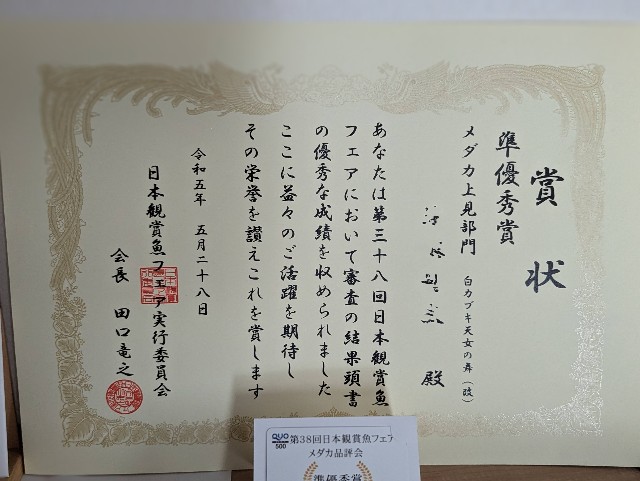 賞状
準優秀賞
メダカ上見部門 白カブキ天女の舞(改)
殿
あなたは第三十八回日本観賞魚
フェアにおいて審査の結果頭書
の優秀な成績を収められました
ここに益々のご活躍を期待し
その栄誉を讃えこれを賞します
令和五年 五月二十八日
日本観賞魚フェア実行委員会
会長 田口竜之
QUO
500
第38回日本観賞魚フェア
メダカ品評会
準優秀賞